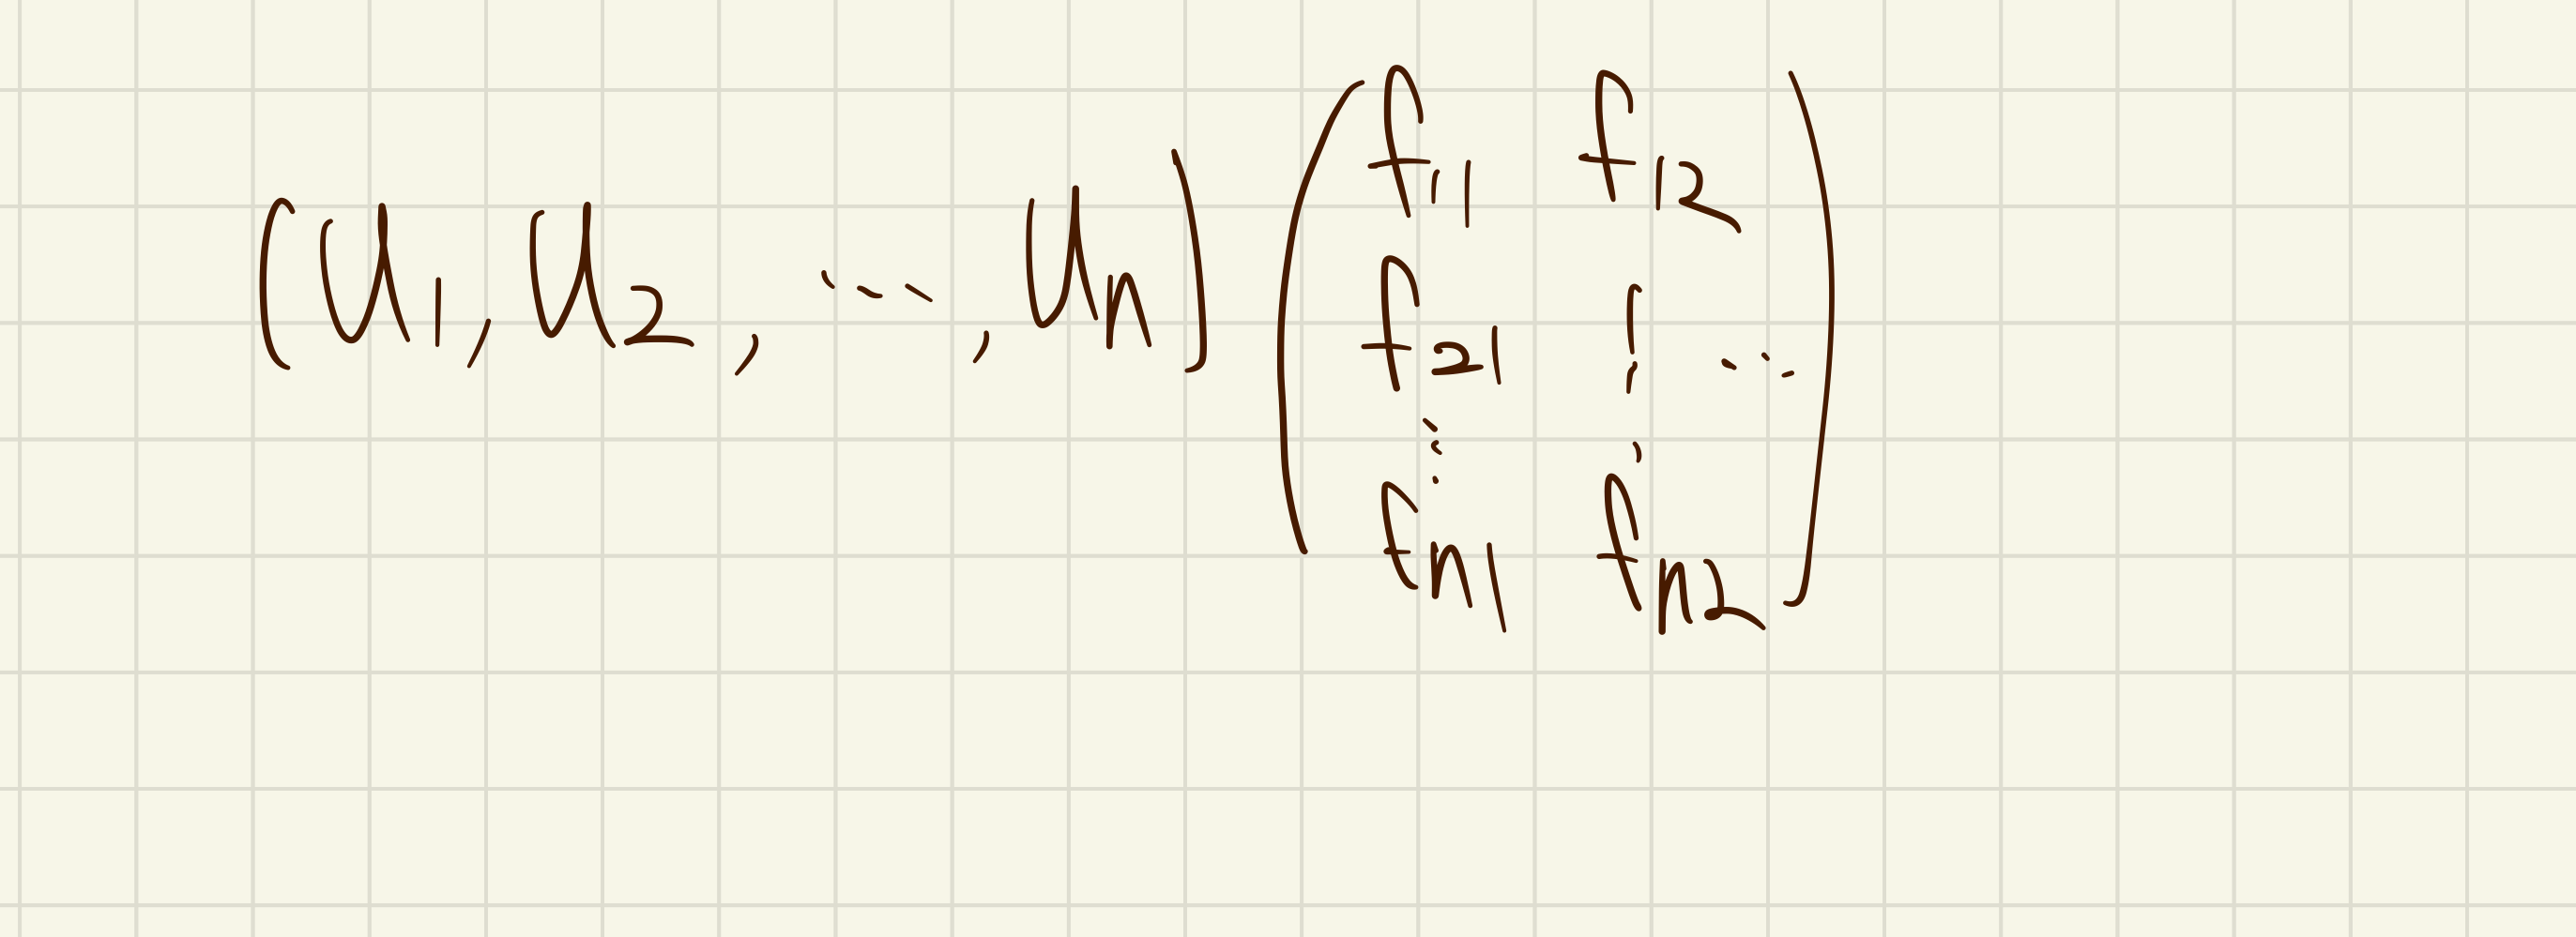 (u₁, u₂, ..., uₙ) ( f₁₁ f₁₂
f₂₁ ⋮ ...
⋮ ⋮
fₙ₁ fₙ₂ )